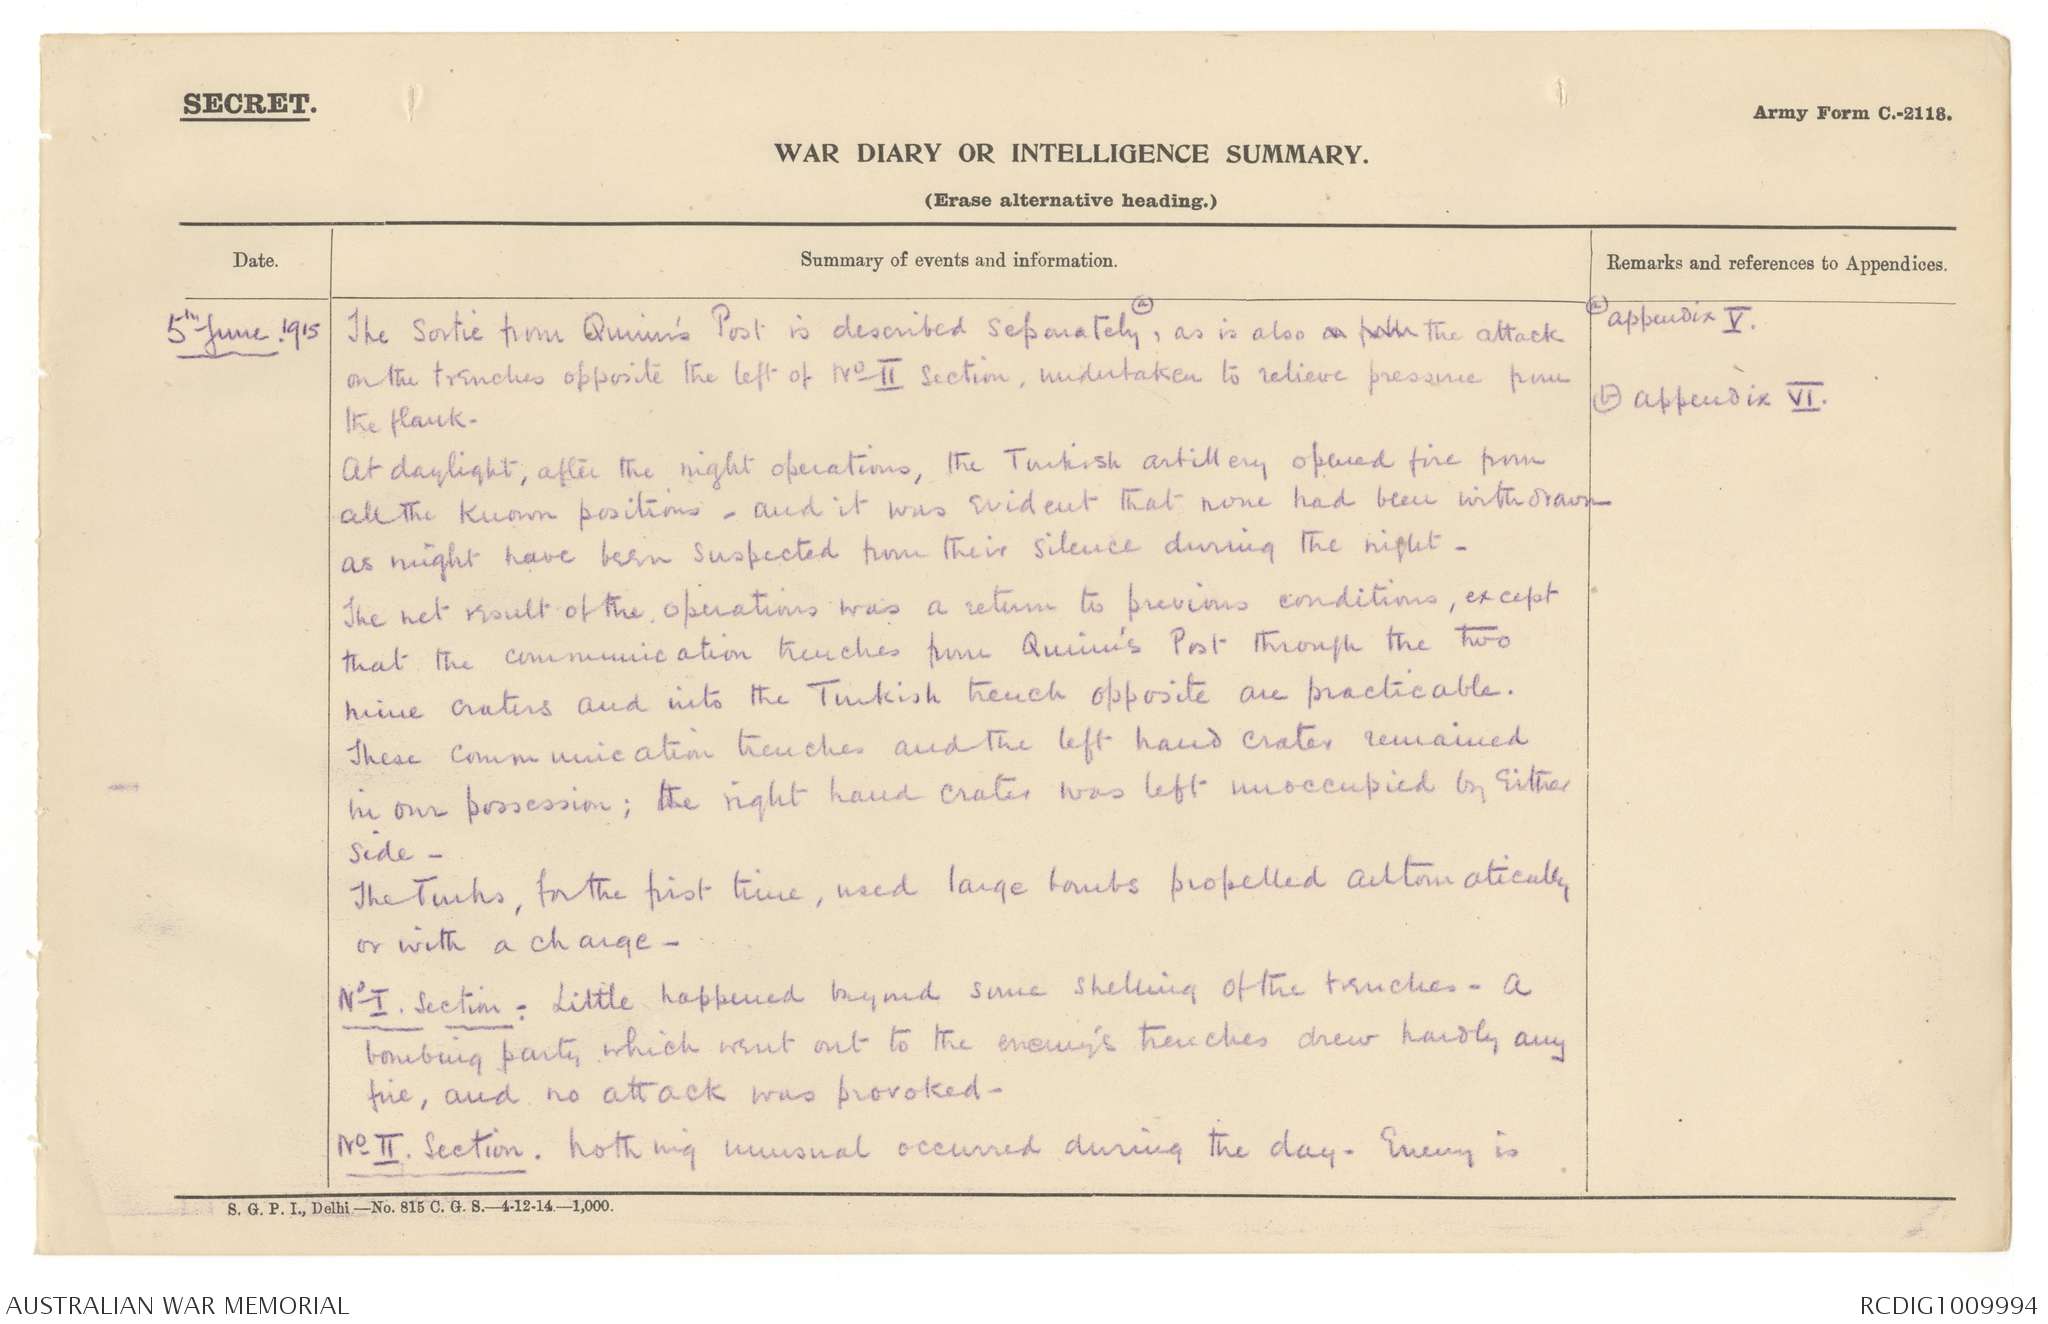 SECRET.
Army Form C.-2118.
WAR DIARY OR INTELLIGENCE SUMMARY.
(Erase alternative heading.)
Date.
Summary of events and information.
Remarks and references to Appendices.
5th June. 1915
The Sortie from Quinn's Post is described separately (a), as is also the attack
on the trenches opposite the left of No II Section, undertaken to relieve pressure from
the flank-
At daylight, after the night operations, the Turkish artillery opened fire from
all the known positions - and it was evident that none had been withdrawn
as might have been suspected from their silence during the night -
The net result of the operations was a return to previous conditions, except
that the communication trenches from Quinn's Post through the two
mine craters and into the Turkish trench opposite are practicable.
These communication trenches and the left hand crater remained
in our possession; the right hand crater was left unoccupied by Either
side -
The Turks, for the first time, used large bombs propelled automatically
or with a charge -
No I. Section - Little happened beyond some shelling of the trenches - A
bombing party which went out to the enemy's trenches drew hardly any
fire, and no attack was provoked -
No II. Section. Nothing unusual occurred during the day - Enemy is
(a) appendix V.
(b) appendix VI.
S. G. P. I., Delhi.—No. 815 C. G. S.—4-12-14.—1,000.
AUSTRALIAN WAR MEMORIAL
RCDIG1009994